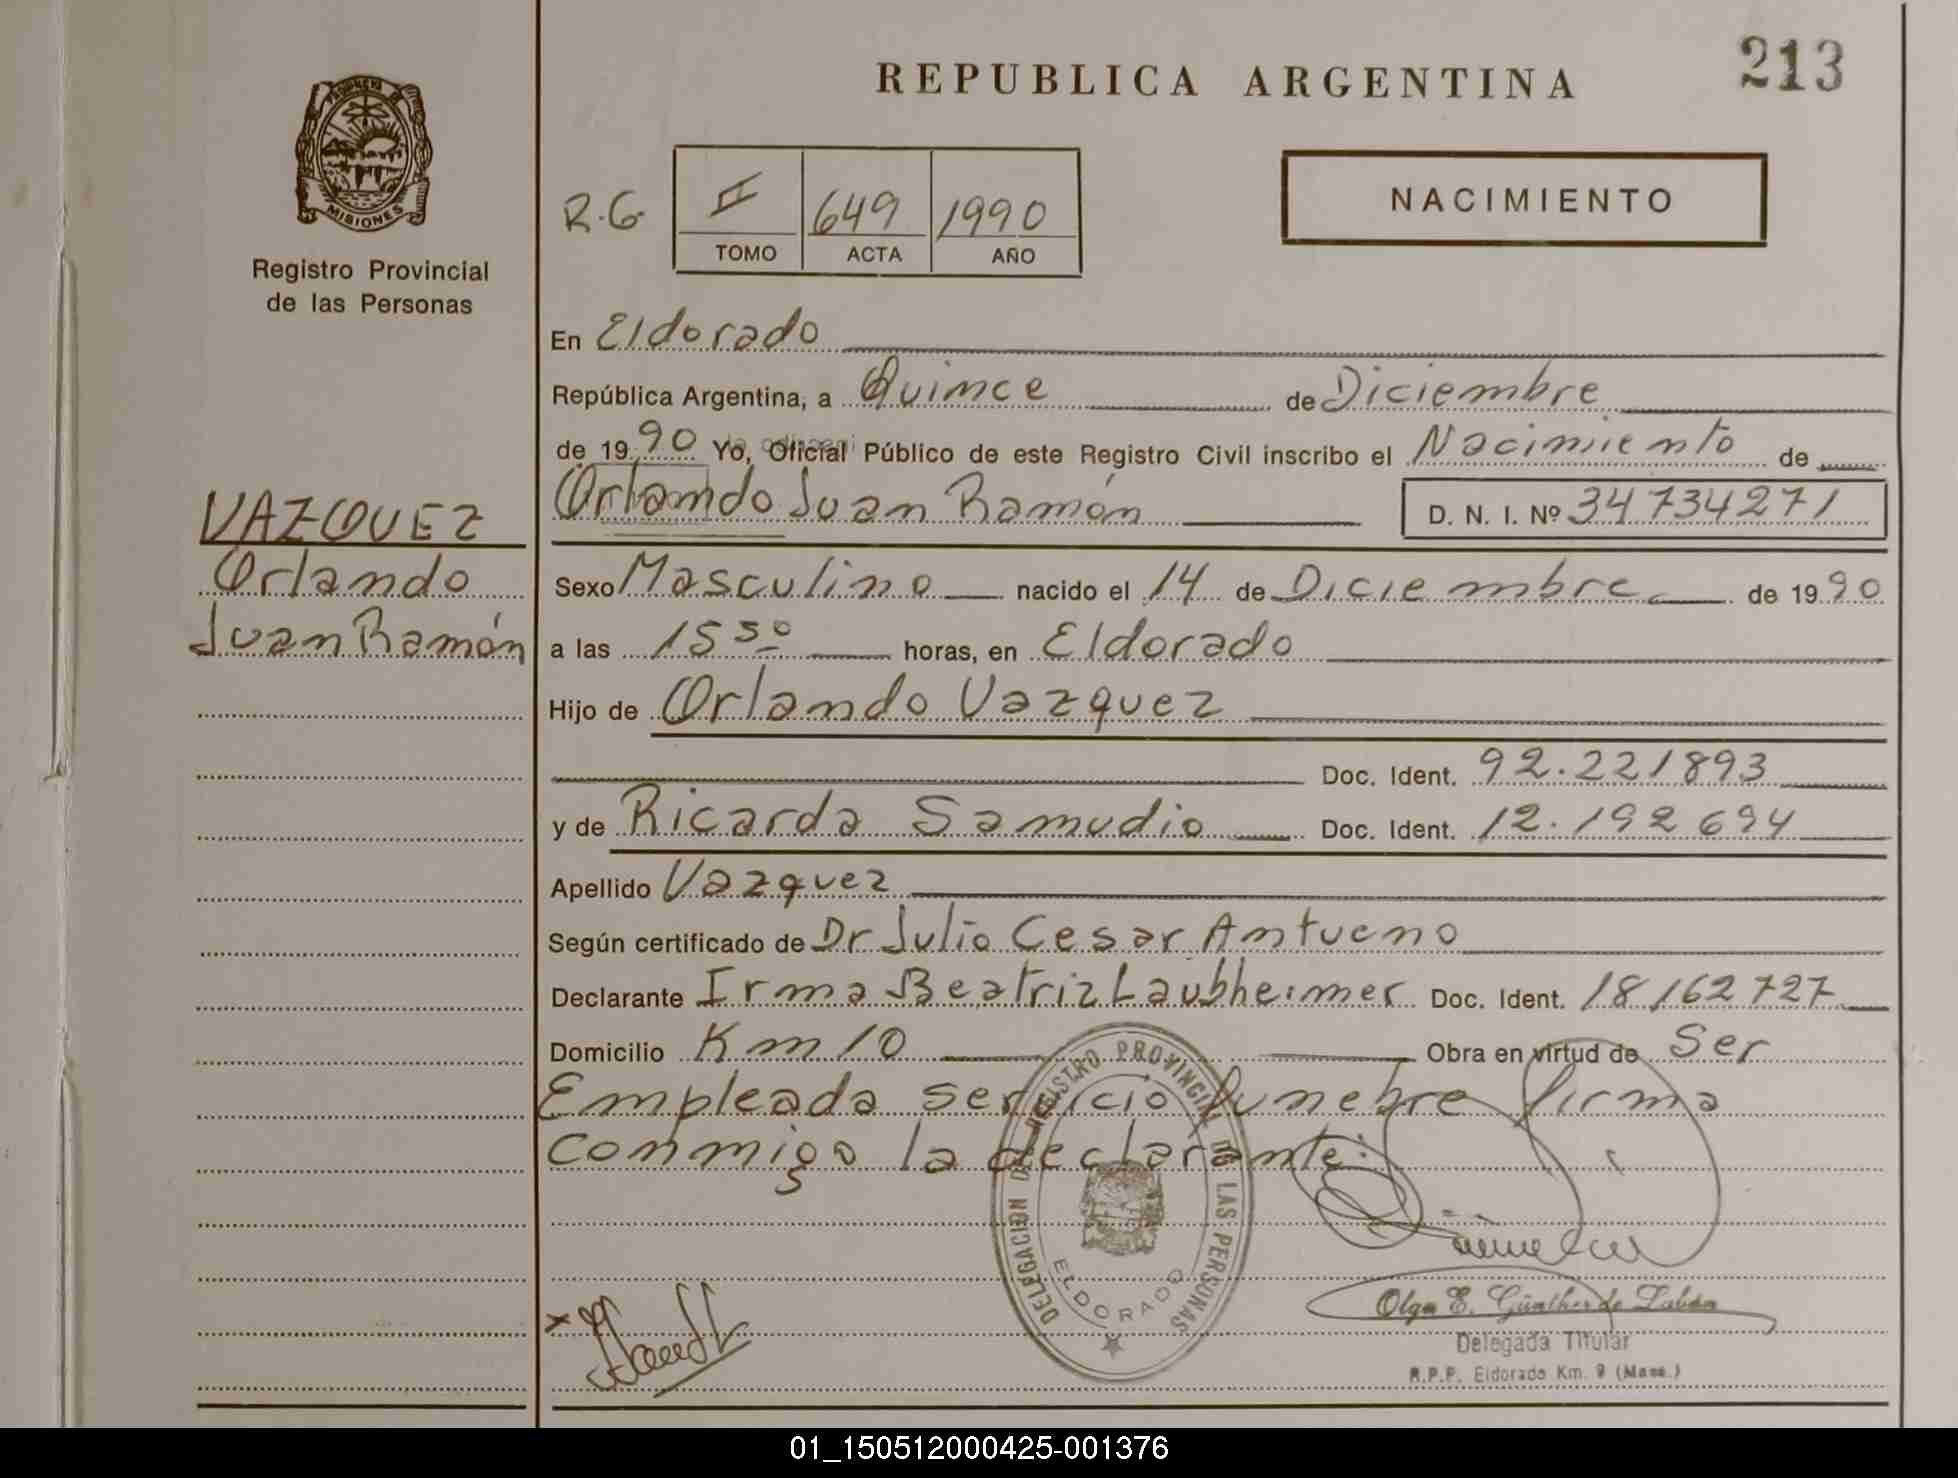 REPUBLICA ARGENTINA
213
PROVINCIA DE
MISIONES
Registro Provincial
de las Personas
R.G.
II 649 1990
TOMO ACTA AÑO
NACIMIENTO
En Eldorado
República Argentina, a Quince de Diciembre
de 1990 Yo, Oficial Público de este Registro Civil inscribo el Nacimiento de
Orlando Juan Ramón D. N. I. Nº 34734271
VAZQUEZ
Orlando
Juan Ramón
Sexo Masculino nacido el 14 de Diciembre de 1990
a las 15 30 horas, en Eldorado
Hijo de Orlando Vazquez
Doc. Ident. 92.221893
y de Ricarda Samudio Doc. Ident. 12.192694
Apellido Vazquez
Según certificado de Dr Julio Cesar Antueno
Declarante Irma Beatriz Laubheimer Doc. Ident. 18162727
Domicilio Km 10 Obra en virtud de Ser
Empleada servicio funebre firma
conmigo la declarante:
DELEGACION DEL REGISTRO PROVINCIAL DE LAS PERSONAS
ELDORADO
Olga E. Günther de
Delegada Titular
R.P.P. Eldorado Km. 9 (Mnes.)
01_150512000425-001376